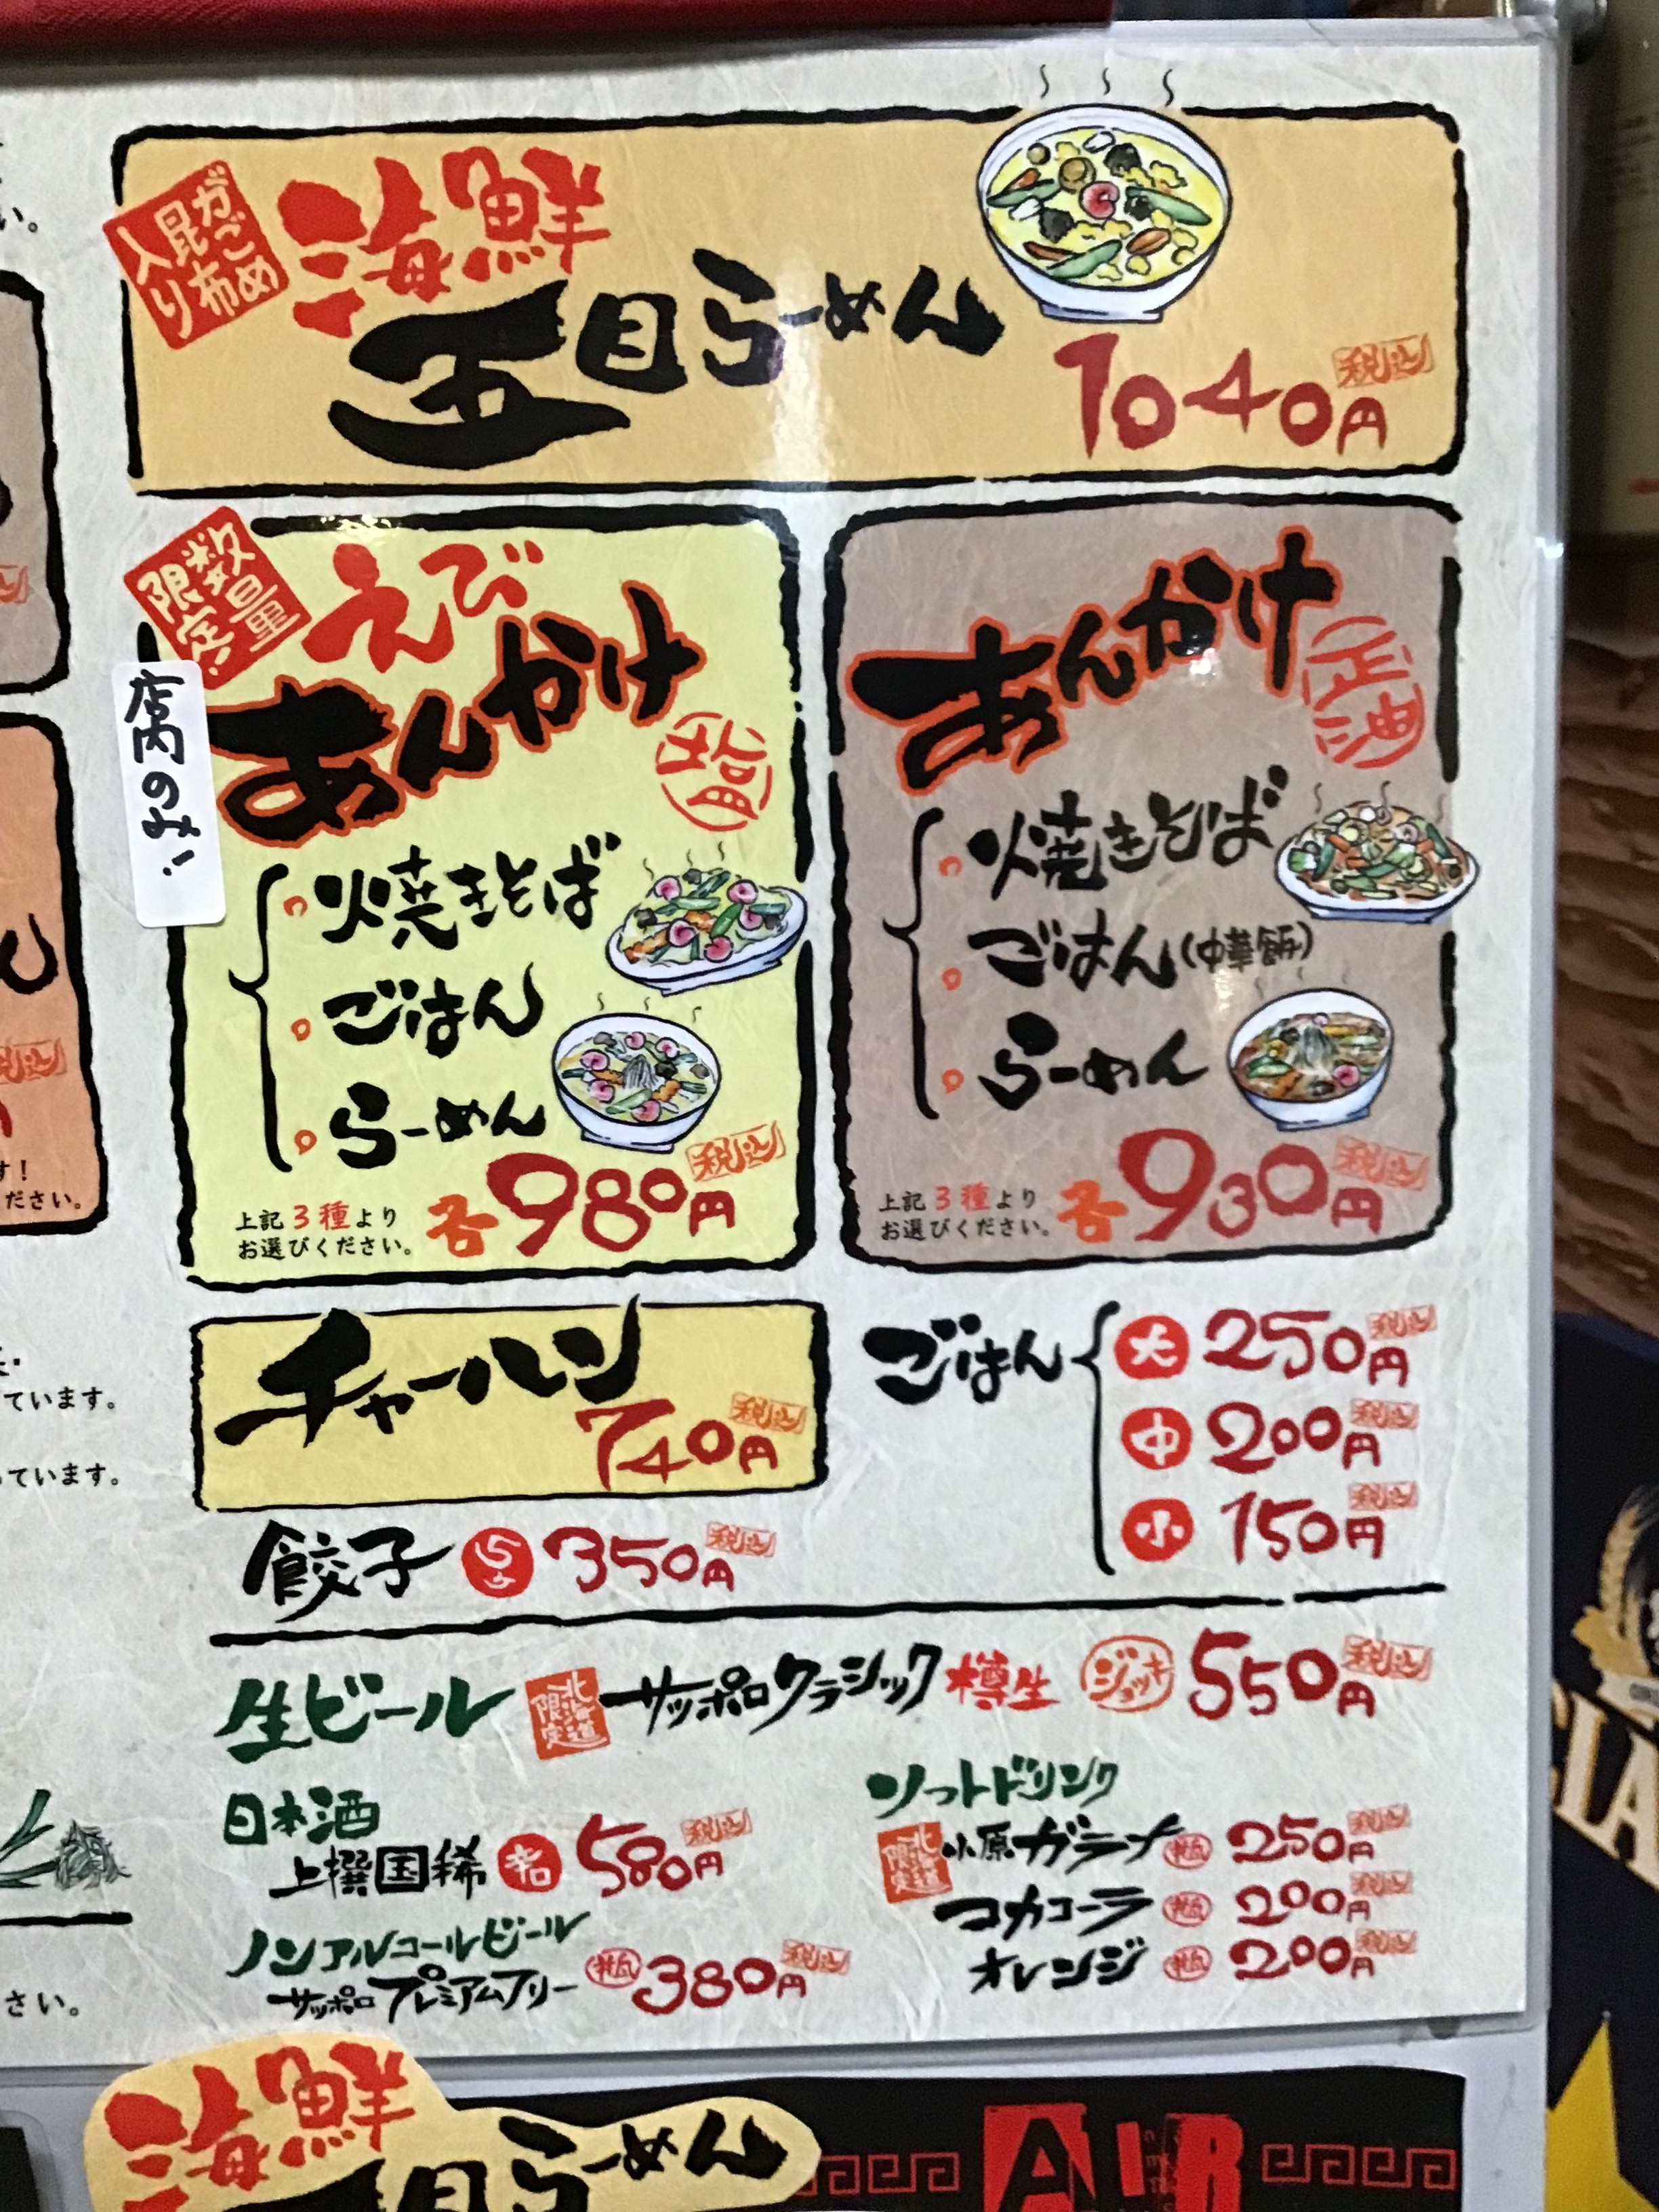 がごめ
昆布
入り
海鮮
五目らーめん
1040円 税込
数量
限定!
えび
あんかけ
塩
店内のみ!
焼きそば
ごはん
らーめん
上記3種より
お選びください。
各980円 税込
あんかけ
正油
焼きそば
ごはん(中華飯)
らーめん
上記3種より
お選びください。
各930円 税込
チャーハン
740円 税込
ごはん
大 250円 税込
中 200円 税込
小 150円 税込
餃子 5コ 350円 税込
生ビール 北海道限定 サッポロクラシック 樽生 ジョッキ 550円 税込
日本酒
上撰国稀 580円 税込
ノンアルコールビール
サッポロプレミアムフリー 瓶 380円 税込
ソフトドリンク
北海道限定 小原ガラナ 瓶 250円 税込
コカコーラ 瓶 200円 税込
オレンジ 瓶 200円 税込
い。
税込
す!
ださい。
ています。
っています。
さい。
海鮮
五目らーめん
AIR
CLA